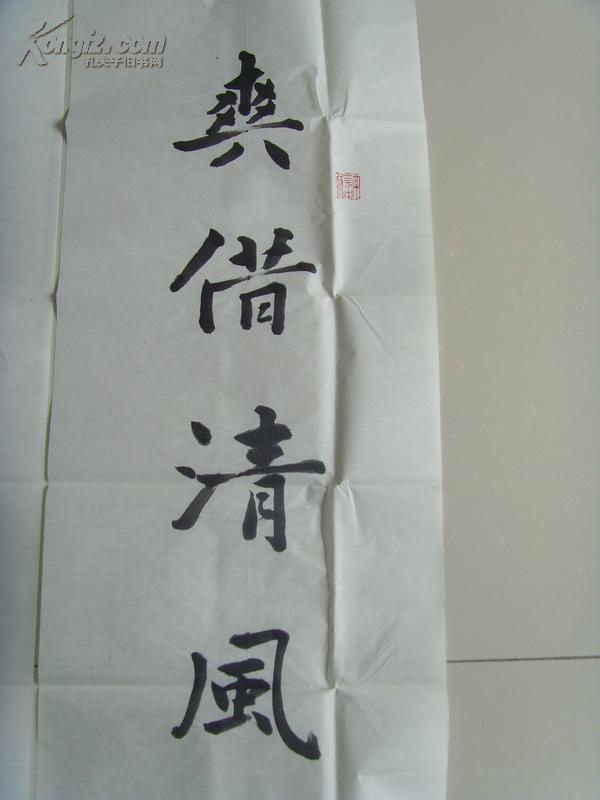 Kongfz.com
孔夫子旧书网
爽借清風